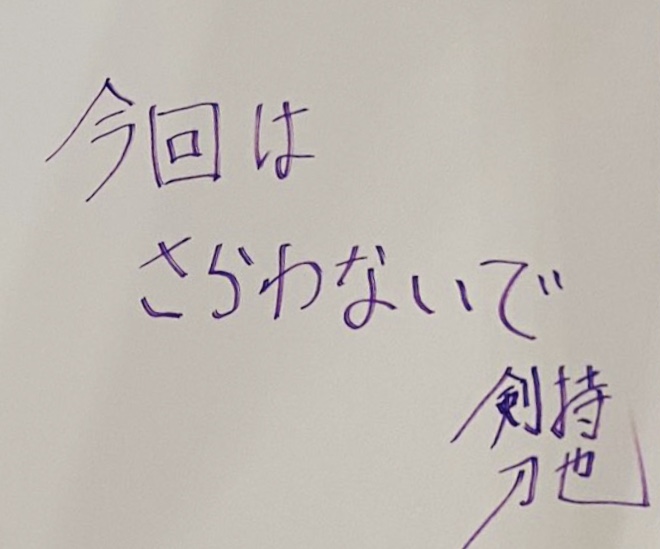 今回は
さらわないで
剣持
刀也